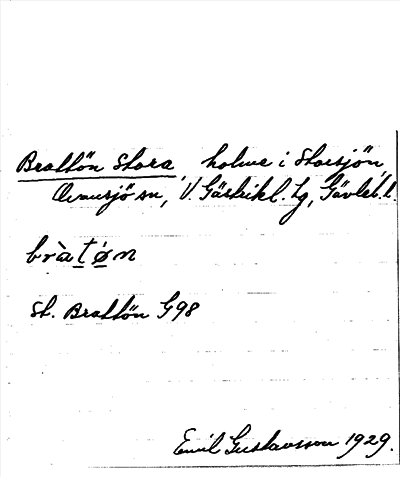 Brattön Stora, holme i Storsjön,
Ovansjö sn, V. Gästrikl. tg, Gävleb. l.
bràtøn
St. Brattön G98
Emil Gustavsson 1929.